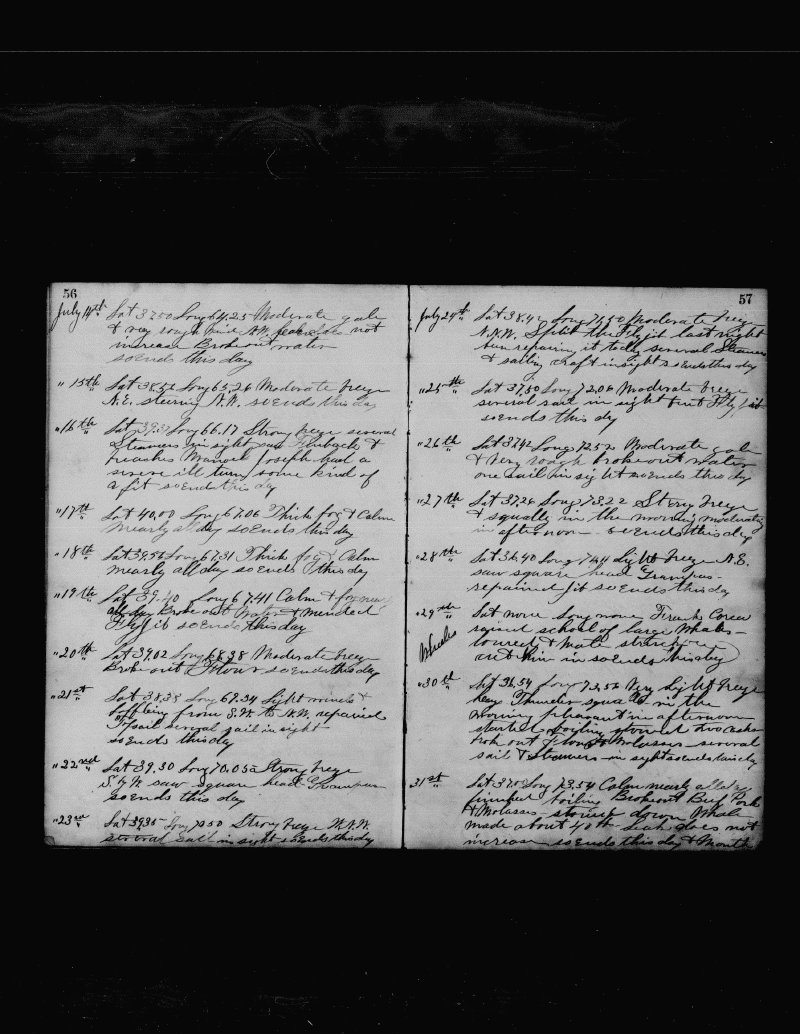 56
July 14th Lat 37.00 Long 64.25 Moderate gale
& very rough wind N.W. leak does not
increase Broke out water
so ends this day
" 15th Lat 38.52 Long 65.26 Moderate breeze
N.E. steering N.W. so ends this day
" 16th Lat Long 66.17 Strong breeze several
Steamers in sight saw Finback &
Manuel Joseph had a
severe ill turn some kind of
a fit so ends this day
" 17th Lat 40.00 Long 67.06 Thick fog & Calm
nearly all day so Ends this day
" 18th Lat 39.56 Long 67.31 Thick fog & Calm
nearly all day so Ends this day
" 19th Lat 39.40 Long 67.41 Calm & foggy
all day Broke out Water & mended
Fly jib so ends this day
" 20th Lat 39.02 Long 68.38 Moderate breeze
Broke out Flour so ends this day
" 21st Lat 38.38 Long 69.34 Light winds &
baffling from S.W. to N.W. repaired
sail several sail in sight
so ends this day
" 22nd Lat 39.30 Long 70.05 Strong breeze
S.W. saw square head Grampus
so ends this day
" 23rd Lat 39.35 Long 70.50 Strong breeze W.N.W.
several sail in sight so Ends this day
57
July 24th Lat 38.42 Long 71.50 Moderate breeze
N.N.W. Split the Fly jib last night
been repairing it today several Steamers
& sailing craft in sight so ends this day
" 25th Lat 37.50 Long 72.06 Moderate breeze
several sail in sight bent Fly jib
so ends this day
" 26th Lat 37.42 Long 72.52 Moderate gale
& very rough broke out Water
one sail in sight so ends this day
" 27th Lat 37.26 Long 73.22 Strong breeze
& squally in the morning moderating
in afternoon so ends this day
" 28th Lat 36.40 Long 74.4 Light breeze N.E.
saw square head Grampus
repaired jib so ends this day
" 29th Lat none Long none Frank Corea
raised school of large Whales
Whales
lowered & Mate struck one
cut him in so Ends this day
" 30th Lat 36.54 Long 73.56 Very Light breeze
heavy Thunder squalls in the
morning pleasant in afternoon
started boiling stowed two casks
broke out flour & Molasses several
sail & Steamers in sight so ends this day
31st Lat 37.0 Long 73.54 Calm nearly all day
finished boiling Broke out Beef Pork
& Molasses stowed down Whale
made about 40 bbls Leak does not
increase so ends this day & Month